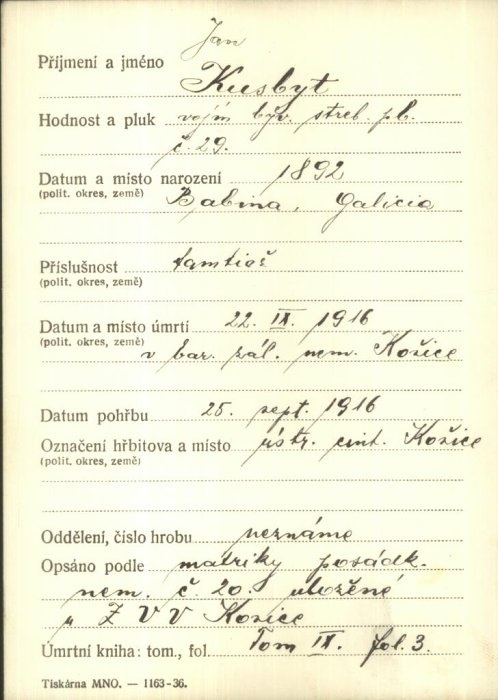 Jan
Příjmení a jméno Kusbyt
Hodnost a pluk vojín býv. střel. pl.
č. 29.
Datum a místo narození 1892
(polit. okres, země) Babina, Galicia
Příslušnost tamtiež
(polit. okres, země)
Datum a místo úmrtí 22. IX. 1916
(polit. okres, země) v bar. zál. nem. Košice
Datum pohřbu 25. sept. 1916
Označení hřbitova a místo ústr. cint. Košice
(polit. okres, země)
Oddělení, číslo hrobu neznáme
Opsáno podle matriky posádk.
nem. č. 20. uložené
u Z V V Košice
Úmrtní kniha: tom., fol. Tom IX. fol. 3.
Tiskárna MNO. — 1163-36.